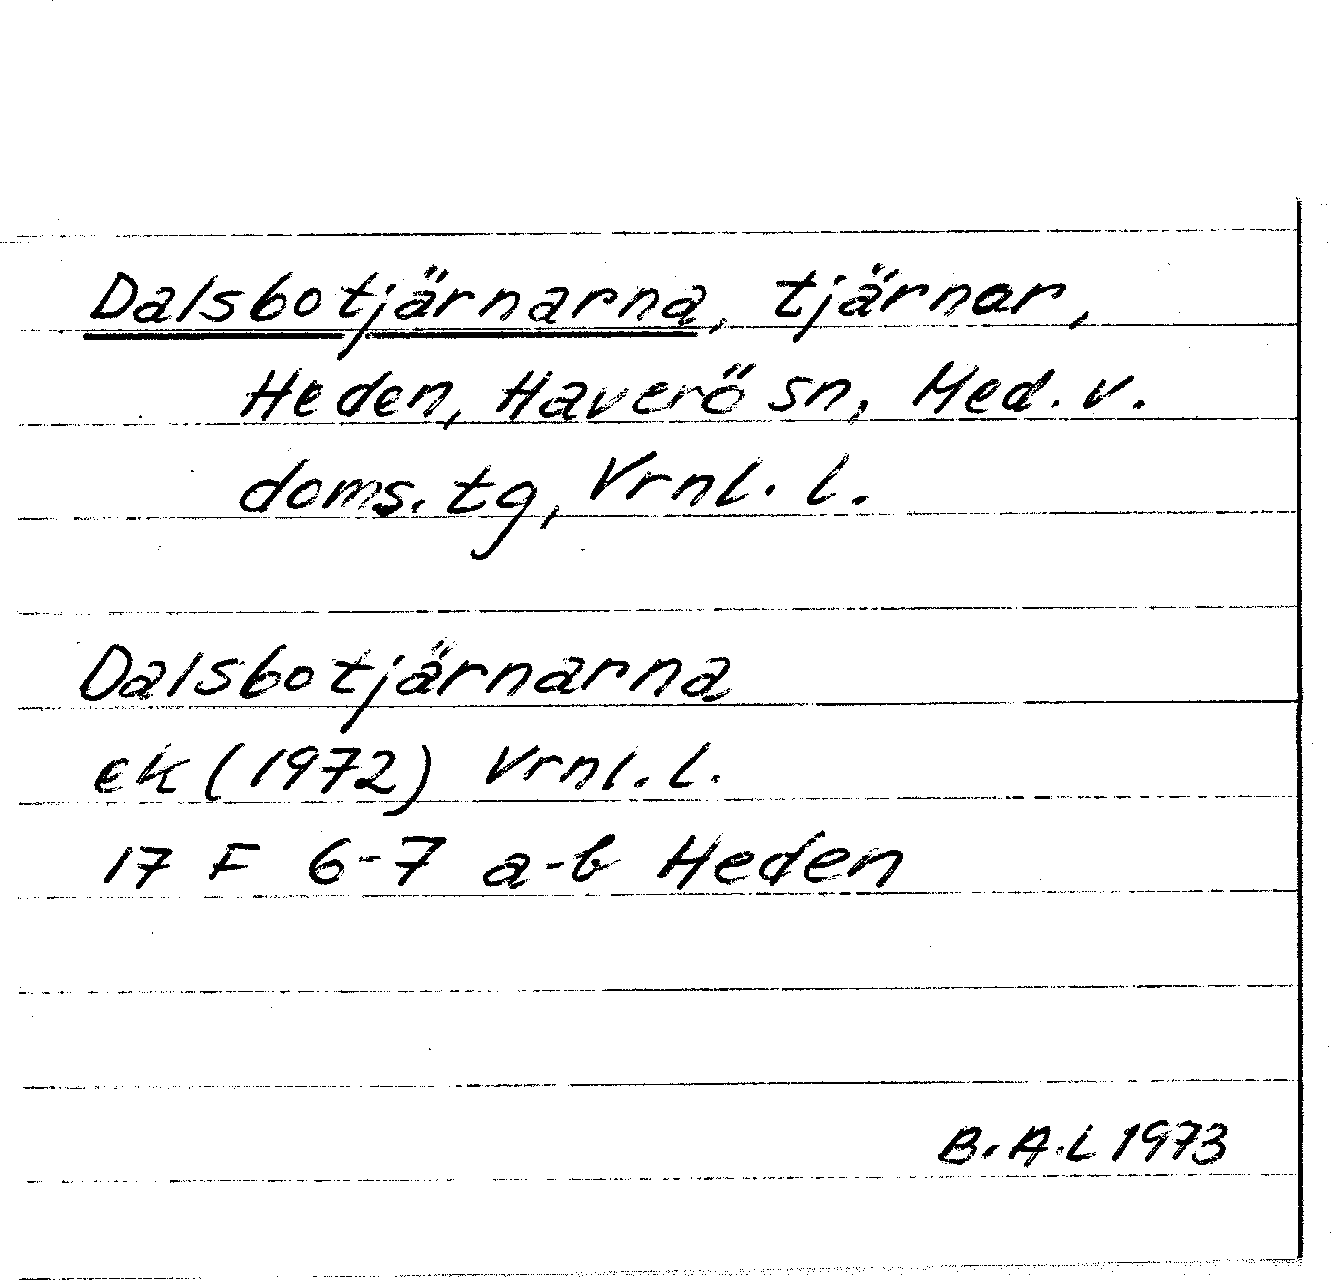 Dalsbotjärnarna, tjärnar,
Heden, Haverö sn, Med. v.
doms. tg, Vrnl. l.
Dalsbotjärnarna
ek (1972) Vrnl. l.
17 F 6-7 a-b Heden
B.A.L 1973